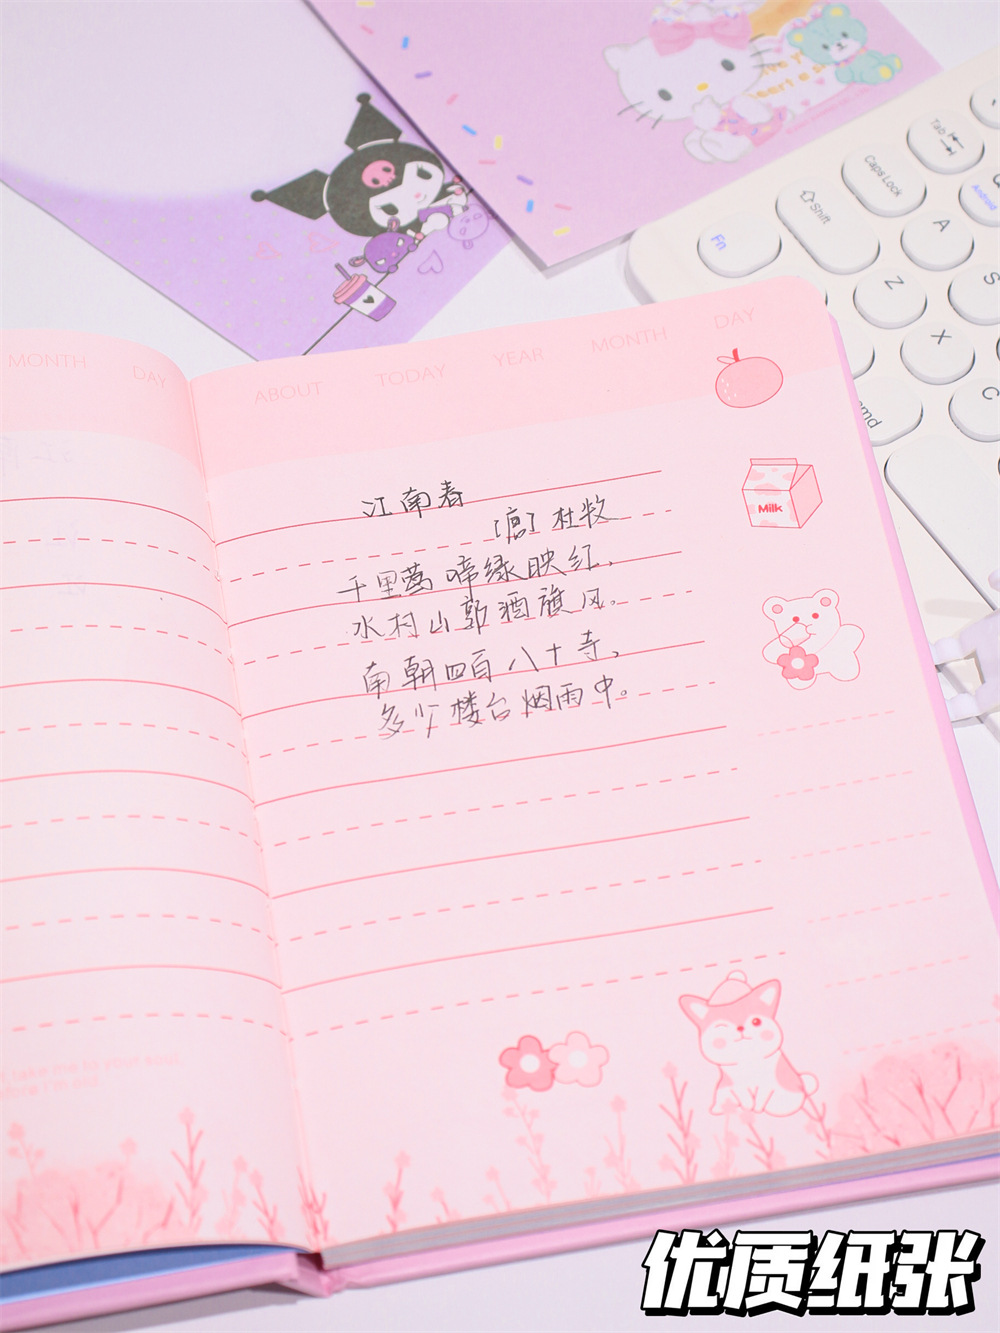 Tab
Caps Lock
Android
Shift
Fn
A
Z
S
X
C
cmd
MONTH DAY
ABOUT TODAY YEAR MONTH DAY
Milk
江南春
[唐] 杜牧
千里莺啼绿映红,
水村山郭酒旗风。
南朝四百八十寺,
多少楼台烟雨中。
take me to your soul
优质纸张